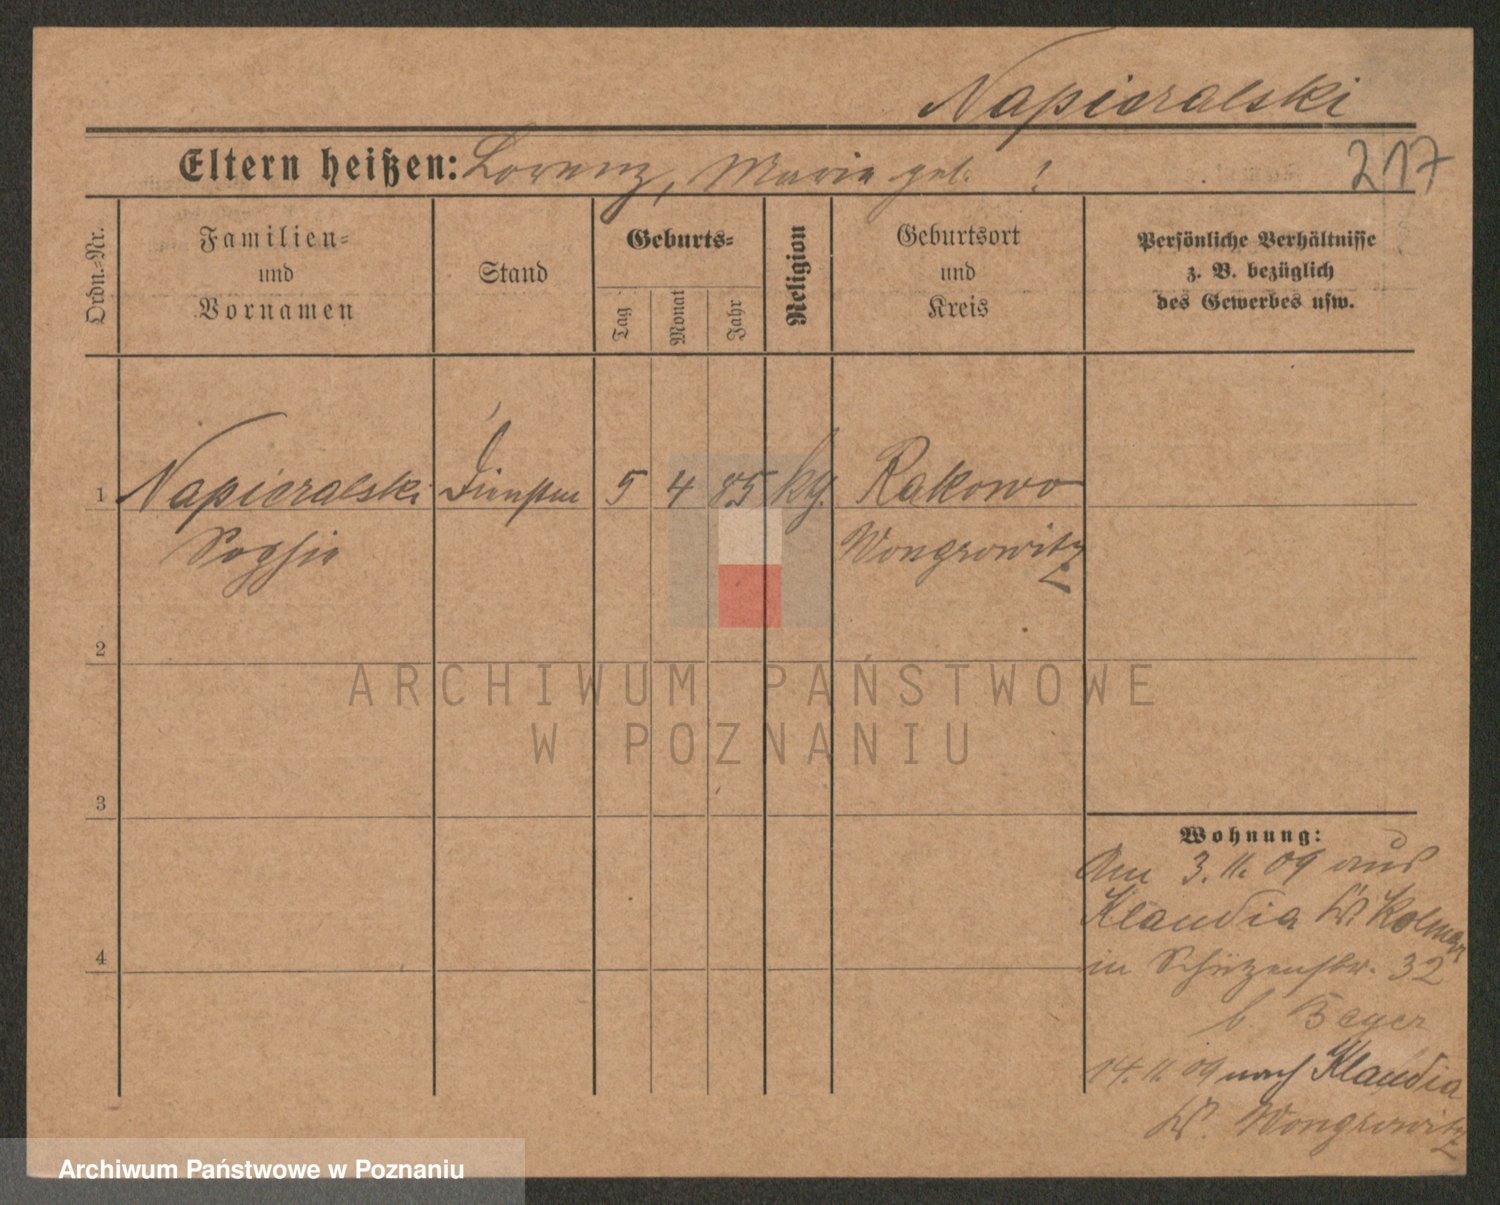 Napieralski
Eltern heißen: Lorenz, Marie geb. ?
217
Ordn.-Nr.
Familien-
und
Vornamen
Stand
Geburts-
Tag
Monat
Jahr
Religion
Geburtsort
und
Kreis
Persönliche Verhältnisse
z. B. bezüglich
des Gewerbes usw.
1 Napieralski 5 4 85 kg. Rakowo
Sophie Wongrowitz
2
3
4
ARCHIWUM PAŃSTWOWE
W POZNANIU
Wohnung:
Am 3.11.09 aus
Klaudia Kr. Kolmar
in Schützenstr. 32
b. Beyer
14.11.09 nach Klaudia
Kr. Wongrowitz
Archiwum Państwowe w Poznaniu